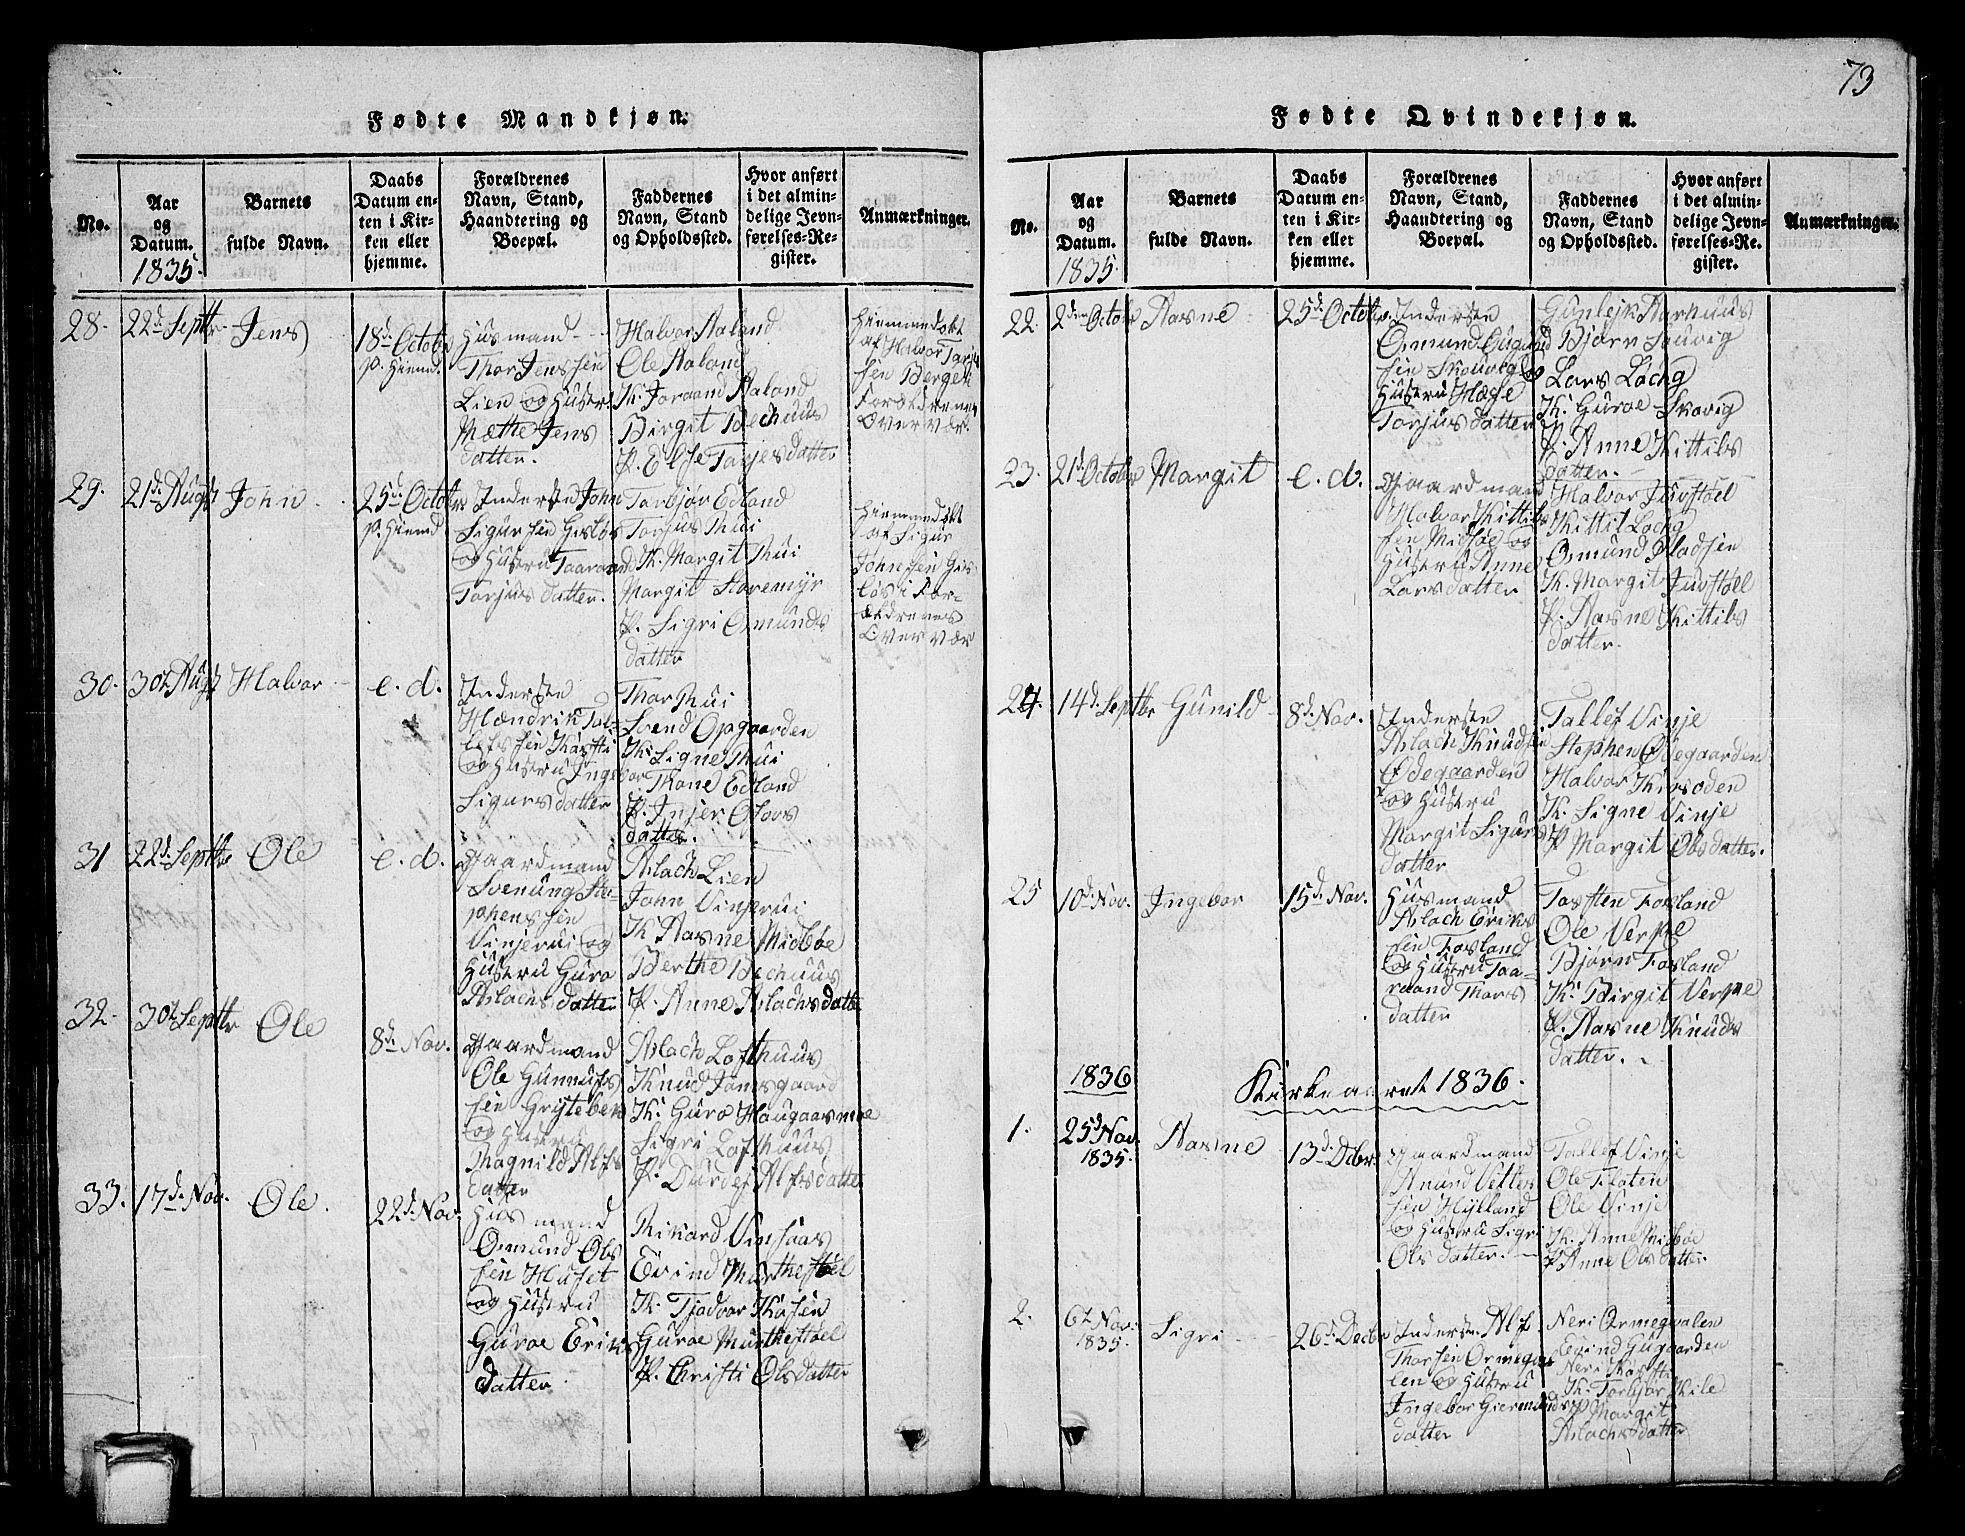 73
Fødte Mandkjøn.
No.
Aar og Datum.
1835.
Barnets fulde Navn.
Daabs Datum enten i Kirken eller hjemme.
Forældrenes Navn, Stand, Haandtering og Boepæl.
Faddernes Navn, Stand og Opholdssted.
Hvor anført i det almindelige Jevnførelses-Register.
Anmærkninger.
28.
22d Septbr
Jens
18d Octobr
p. Hiemd.
Husmand
Thor Jenssen
Lien og Hustr.
Mæthe Jens
datter.
Halvor Aaland
Ole Aaland
K. Joraand Aaland
Birgit Bechuus
P. Else Tarjesdatter
Hiemmedøbt
af Halvor Tarje
sen Berge i
Forældrenes
Overvær.
29.
21d. Augst
John
25d. Octobr
p. Hiemd
Inderste John
Sigursen
og Hustru Taaraand
Torjus datter.
Tarbjør Edland
Torjus Thui
K. Margit Thui
Margit Staremyr
P. Sigri Osmunds
datter
Hiemmedøbt
af Sigur
Johnsen Gis
løs i For-
ældrenes
Overvær
30.
30t Augst
Halvor
e. d.
Inderste
Hændrik Tal-
lefssen
og Hustru Ingebor
Sigurs datter
Thor Thui
Svend Opgaarden
K. Signe Thui
Thone Edland
P. Injer Olavs
datter.
31
22d. Septbr
Ole
e. d.
Gaardmand
Svenung Ste-
phenssen
Vinjerui og
Hustru Guro
Aslachs datter
Aslach Lien
John Vinjerui
K. Aasne Midbøe
Berthe Bechuus
P. Anne Aslachsdatter
32.
30t Septbr
Ole
8d. Nov.
Gaardmand
Ole Gunnufs
sen Gryteberg
og Hustru
Magnild Alfs
datter
Aslach Lofthuus
Knud Jamsgaard
K. Guro Haugaasmoe
Sigri Lofthuus
P. Durdei Alfsdatter
33.
17d. Nov.
Ole.
22d. Nov.
Husmand
Osmund Ols
sen Huset
og Hustru
Guroe Eriks
datter
Rikard Vinsaas
Eivind Murthestøel
K. Tjodvor Kaasen
Guroe Murthestøel
P. Christi Olsdatter
Fødte Qvindekjøn.
No.
Aar og Datum.
1835.
Barnets fulde Navn.
Daabs Datum enten i Kirken eller hjemme.
Forældrenes Navn, Stand, Haandtering og Boepæl.
Faddernes Navn, Stand og Opholdssted.
Hvor anført i det almindelige Jevnførelses-Re. gister.
Anmærkninger.
22.
2den Octobr
Aasne
25d. Octobr.
Inderste
Osmund Gugund
sen Skouvig og
Hustru Hæge
Torjus datter
Gunlejk Aarhuus
Bjørn Souvig
Lars Lochg
K. Guroe Skovig
P. Anne Kittils
datter.
23.
21d. Octobr
Margit
e. d.
Gaardmand
Halvor Kittils
sen Midbøe og
Hustru Anne
Larsdatter
Halvor Juvstøel
Kittil Lochg
Osmund Gladsen
K. Margit Juvstøel
P. Aasne Kittils
datter.
24.
14d. Septbr
Gunild
8d. Nov.
Inderste
Aslach Knudsen
Ødegaarden
og Hustru
Margit Sigurs
datter
Tallef Vinje
Stephen Ødegaarden
Halvor Kirsoden
K. Signe Vinje
P. Margit Olsdatter.
25
10d. Nov.
Ingebor
15d. Nov.
Husmand
Aslach Eriks
sen Fosland
og Hustru Taa-
raand Thors
datter
Torsten Fosland
Ole Verpe
Bjørn Fosland
K. Birgit Verpe
P. Aasne Knuds
datter.
1836
Kirkeaaret 1836.
1.
25d Nov.
1835.
Aasne
13d. Dcbr.
Gaardmand
Anund Vetles
sen Hylland
og Hustru Sigri
Ols datter.
Tallef Vinje
Ole Flaten
Ole Vinje
K. Anne Midbøe
P. Anne Olsdatter
2.
6t Nov.
1835.
Sigri
26d. Decbr
Inderste Alf
Thorsen Ormegva
len og Hustru
Ingebor Giermunds
datter
Neri Ormegvalen
Eivind Gugaarden
Neri
K. Torbjør Kile
P. Margit
Aslachsdatter